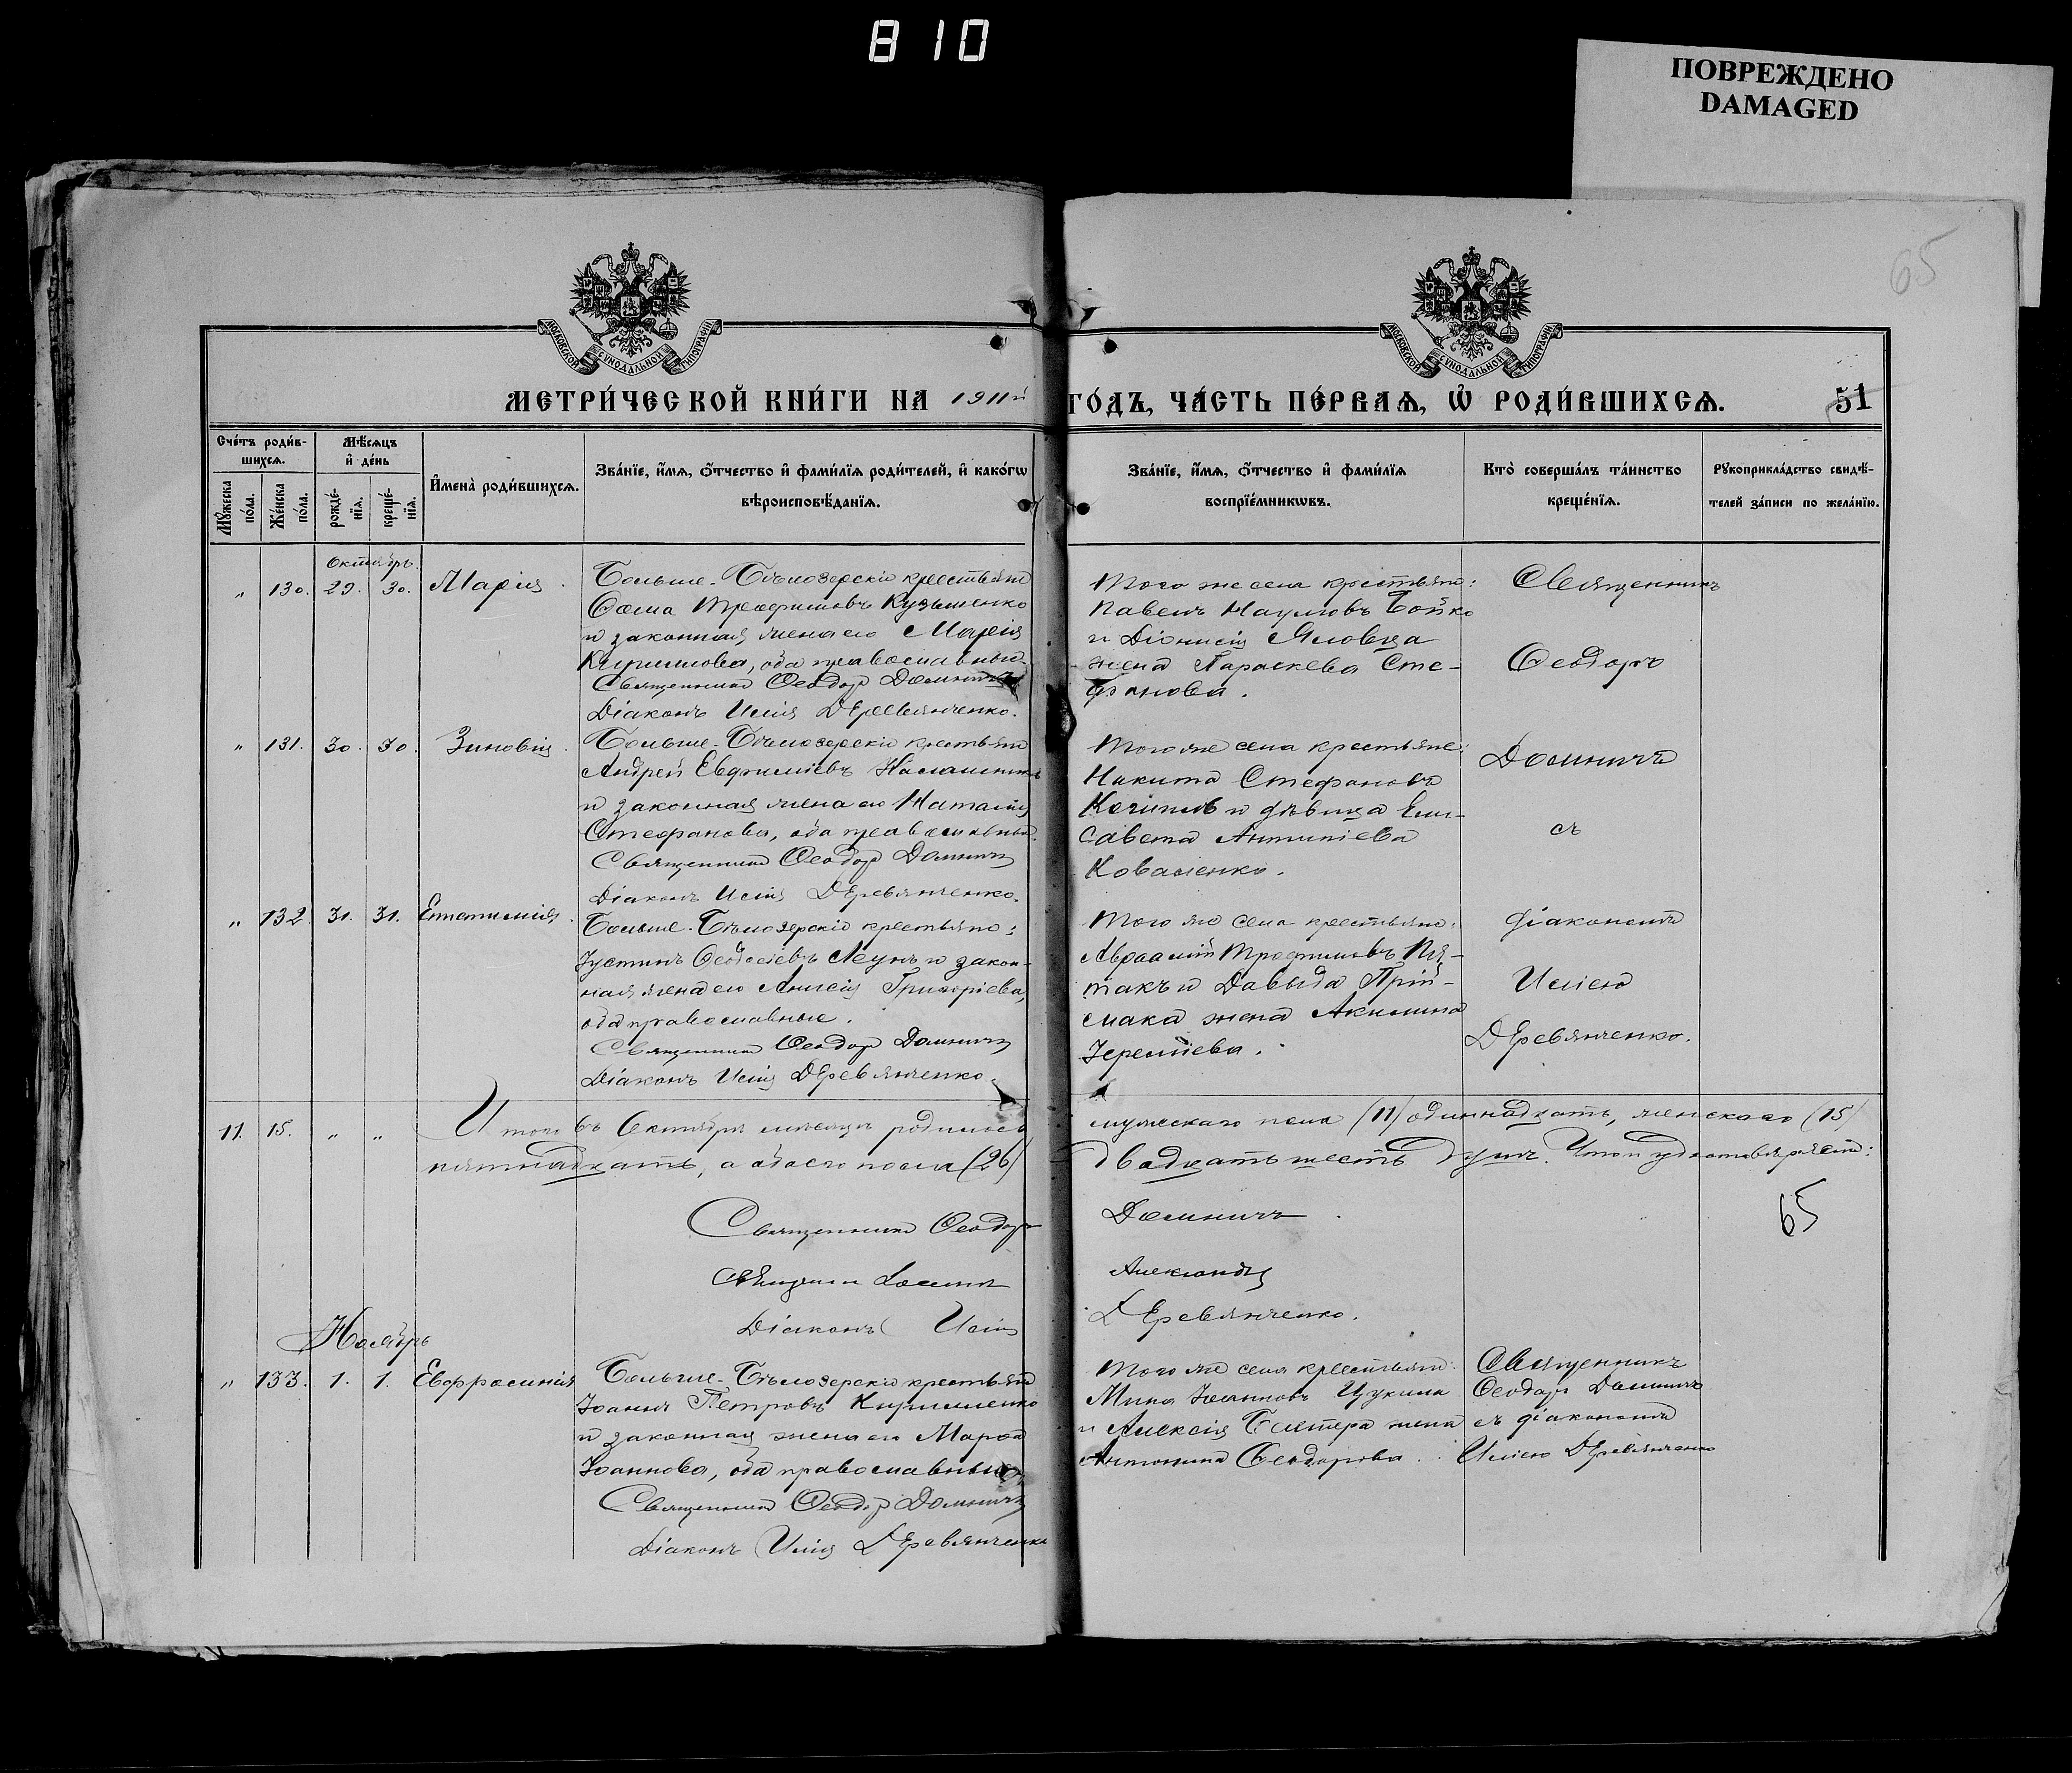 810
ПОВРЕЖДЕНО
DAMAGED
65
МОСКОВСКОЙ СѴНОДАЛЬНОЙ ТИПОГРАФІИ
МОСКОВСКОЙ СѴНОДАЛЬНОЙ ТИПОГРАФІИ
МЕТРИ́ЧЕСКОЙ КНИ́ГИ НА 1911й ГО́ДЪ, ЧА́СТЬ ПЕ́РВАѦ, Ѡ҆ РОДИ́ВШИХСѦ.
51
Сче́тъ роди́в-
шихсѧ.
Мѣ́сѧцъ
и҆ де́нь
Мꙋ́жеска
по́ла.
Же́нска
по́ла.
рожде́-
нїѧ.
креще́-
нїѧ.
И҆мена̀ роди́вшихсѧ.
Зва́нїе, и҆́мѧ, ѻ҆́тчество и҆ фами́лїѧ роди́телей, и҆ како́гѡ
вѣроисповѣ́данїѧ.
Зва́нїе, и҆́мѧ, ѻ҆́тчество и҆ фами́лїѧ
воспрїе́мникѡвъ.
Кто̀ соверша́лъ та́инство
креще́нїѧ.
Рꙋкоприкла́дство свидѣ́-
телей за́писи по жела́нїю.
Октябрь.
„ 130. 29. 30. Марія.
Больше-Бѣлозерскіе крестьяне
Ѳома Трофимовъ Кузьменко
и законная жена его Марія
Кириллова, оба православные.
Священникъ Ѳеодоръ Домничъ
Діаконъ Илія Деревянченко.
Того же села крестьяне:
Павелъ Наумовъ Бойко
и Діонисія Яловца
жена Параскева Сте-
фанова.
Священникъ
Ѳеодоръ
„ 131. 30. 30. Зиновія.
Больше-Бѣлозерскіе крестьяне
Андрей Евфиміевъ
и законная жена его Наталія
Стефанова, оба православные.
Священникъ Ѳеодоръ Домничъ
Діаконъ Илія Деревянченко.
Того же села крестьяне:
Никита Стефановъ
и дѣвица Ели-
савета Антипіева
Коваленко.
Домничъ
съ
„ 132. 31. 31. Епистимія.
Больше-Бѣлозерскіе крестьяне:
Іустинъ Ѳеодосіевъ Леунъ и закон-
ная жена его Анисія Григоріева,
оба православные.
Священникъ Ѳеодоръ Домничъ
Діаконъ Илія Деревянченко.
Того же села крестьяне:
Авраамій Трофимовъ Пя-
такъ и Давыда Прій-
мака жена Акилина
Іереміева.
діакономъ
Иліею
Деревянченко.
11. 15. „ „ Итого въ Октябрѣ мѣсяцѣ родилось мужескаго пола (11) одиннадцать, женскаго (15)
пятнадцать, а обоего пола (26) двадцать шесть душъ. Что и удостовѣряемъ:
Священникъ Ѳеодоръ Домничъ
65
Александръ
Діаконъ Илія Деревянченко.
Ноябрь
„ 133. 1. 1. Евфросинія
Больше-Бѣлозерскіе крестьяне
Іоаннъ Петровъ Кириленко
и законная жена его Марѳа
Іоаннова, оба православные.
Священникъ Ѳеодоръ Домничъ
Діаконъ Илія Деревянченко
Того же села крестьяне:
Мина Іоанновъ Цукина
и Алексія жена
Антонина Ѳеодорова.
Священникъ
Ѳеодоръ Домничъ
съ діакономъ
Иліею Деревянченко